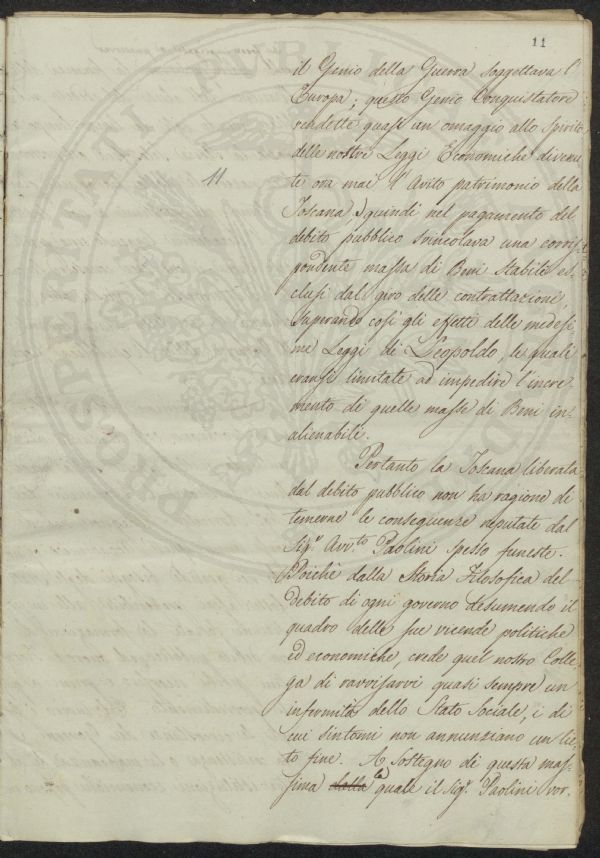 11
il Genio della Guerra soggettava l'
Europa; questo Genio Conquistatore
rendette quasi un omaggio allo spirito
delle nostre Leggi Economiche divenu
te ora mai l'Avito patrimonio della
11
Toscana,) quindi nel pagamento del
debito pubblico svincolava una corris
pondente massa di Beni stabili es
clusi dal giro delle contrattazioni,
superando così gli effetti delle medesi
me Leggi di Leopoldo, le quali
eransi limitate ad impedire l'incre
mento di quelle masse di Beni in-
alienabili.
Pertanto la Toscana liberata
dal debito pubblico non ha ragione di
temerne le conseguenze reputate dal
Sigr. Avvto Paolini spesso funeste.
Poichè dalla Storia Filosofica del
Debito di ogni governo desumendo il
quadro delle sue vicende politiche
ed economiche, crede quel nostro Colle,
ga di ravvisarvi quasi sempre un
infermità dello Stato Sociale, i di
cui sintomi non annunziano un lie,
to fine. A sostegno di questa mas,
sima dalla la quale il Sigr. Paolini vor.
PROSPERITATI PUBLICAE